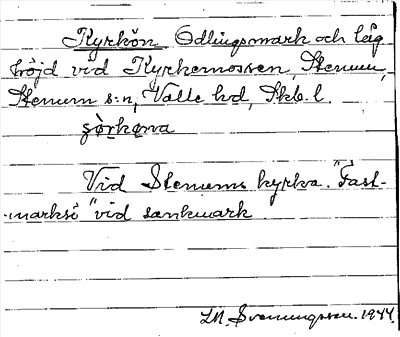 Kyrkön Odlingsmark och låg
höjd vid Kyrkemossen, Stenum,
Stenum s:n, Valle hd, Skb. l.
Vid Stenums kyrka. "Fast-
marksö" vid sankmark
LM. Svenungsson. 1944.